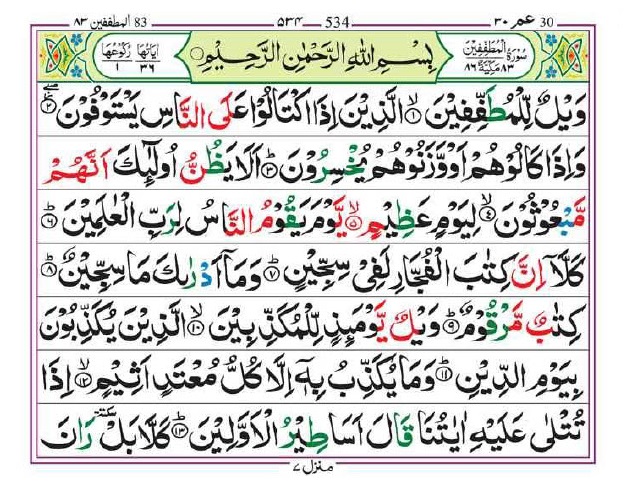 30 عم ٣٠ 534 ٥٣٤ 83 المطففين ٨٣
سُوْرَةُ الْمُطَفِّفِيْنَ بِسْمِ اللّٰهِ الرَّحْمٰنِ الرَّحِيْمِ اٰيَاتُهَا رُكُوْعُهَا
٨٣ مَكِّيَّةٌ ٨٦ ٣٦ ١
وَيْلٌ لِّلْمُطَفِّفِيْنَ ۙ‏﴿۱﴾ الَّذِيْنَ اِذَا اكْتَالُوْا عَلَى النَّاسِ يَسْتَوْفُوْنَ ۖ‏﴿۲﴾
وَاِذَا كَالُوْهُمْ اَوْ وَّزَنُوْهُمْ يُخْسِرُوْنَ ؕ‏﴿۳﴾ اَلَا يَظُنُّ اُولٰٓئِكَ اَنَّهُمْ
مَّبْعُوْثُوْنَ ۙ‏﴿۴﴾ لِيَوْمٍ عَظِيْمٍ ۙ‏﴿۵﴾ يَّوْمَ يَقُوْمُ النَّاسُ لِرَبِّ الْعٰلَمِيْنَ ؕ‏﴿۶﴾
كَلَّاۤ اِنَّ كِتٰبَ الْفُجَّارِ لَفِيْ سِجِّيْنٍ ؕ‏﴿۷﴾ وَمَاۤ اَدْرٰىكَ مَا سِجِّيْنٌ ؕ‏﴿۸﴾
كِتٰبٌ مَّرْقُوْمٌ ؕ‏﴿۹﴾ وَيْلٌ يَّوْمَئِذٍ لِّلْمُكَذِّبِيْنَ ۙ‏﴿۱۰﴾ الَّذِيْنَ يُكَذِّبُوْنَ
بِيَوْمِ الدِّيْنِ ؕ‏﴿۱۱﴾ وَمَا يُكَذِّبُ بِهٖۤ اِلَّا كُلُّ مُعْتَدٍ اَثِيْمٍ ۙ‏﴿۱۲﴾ اِذَا
تُتْلٰى عَلَيْهِ اٰيٰتُنَا قَالَ اَسَاطِيْرُ الْاَوَّلِيْنَ ؕ‏﴿۱۳﴾ كَلَّا بَلْ ٚ رَانَ
منزل ٧